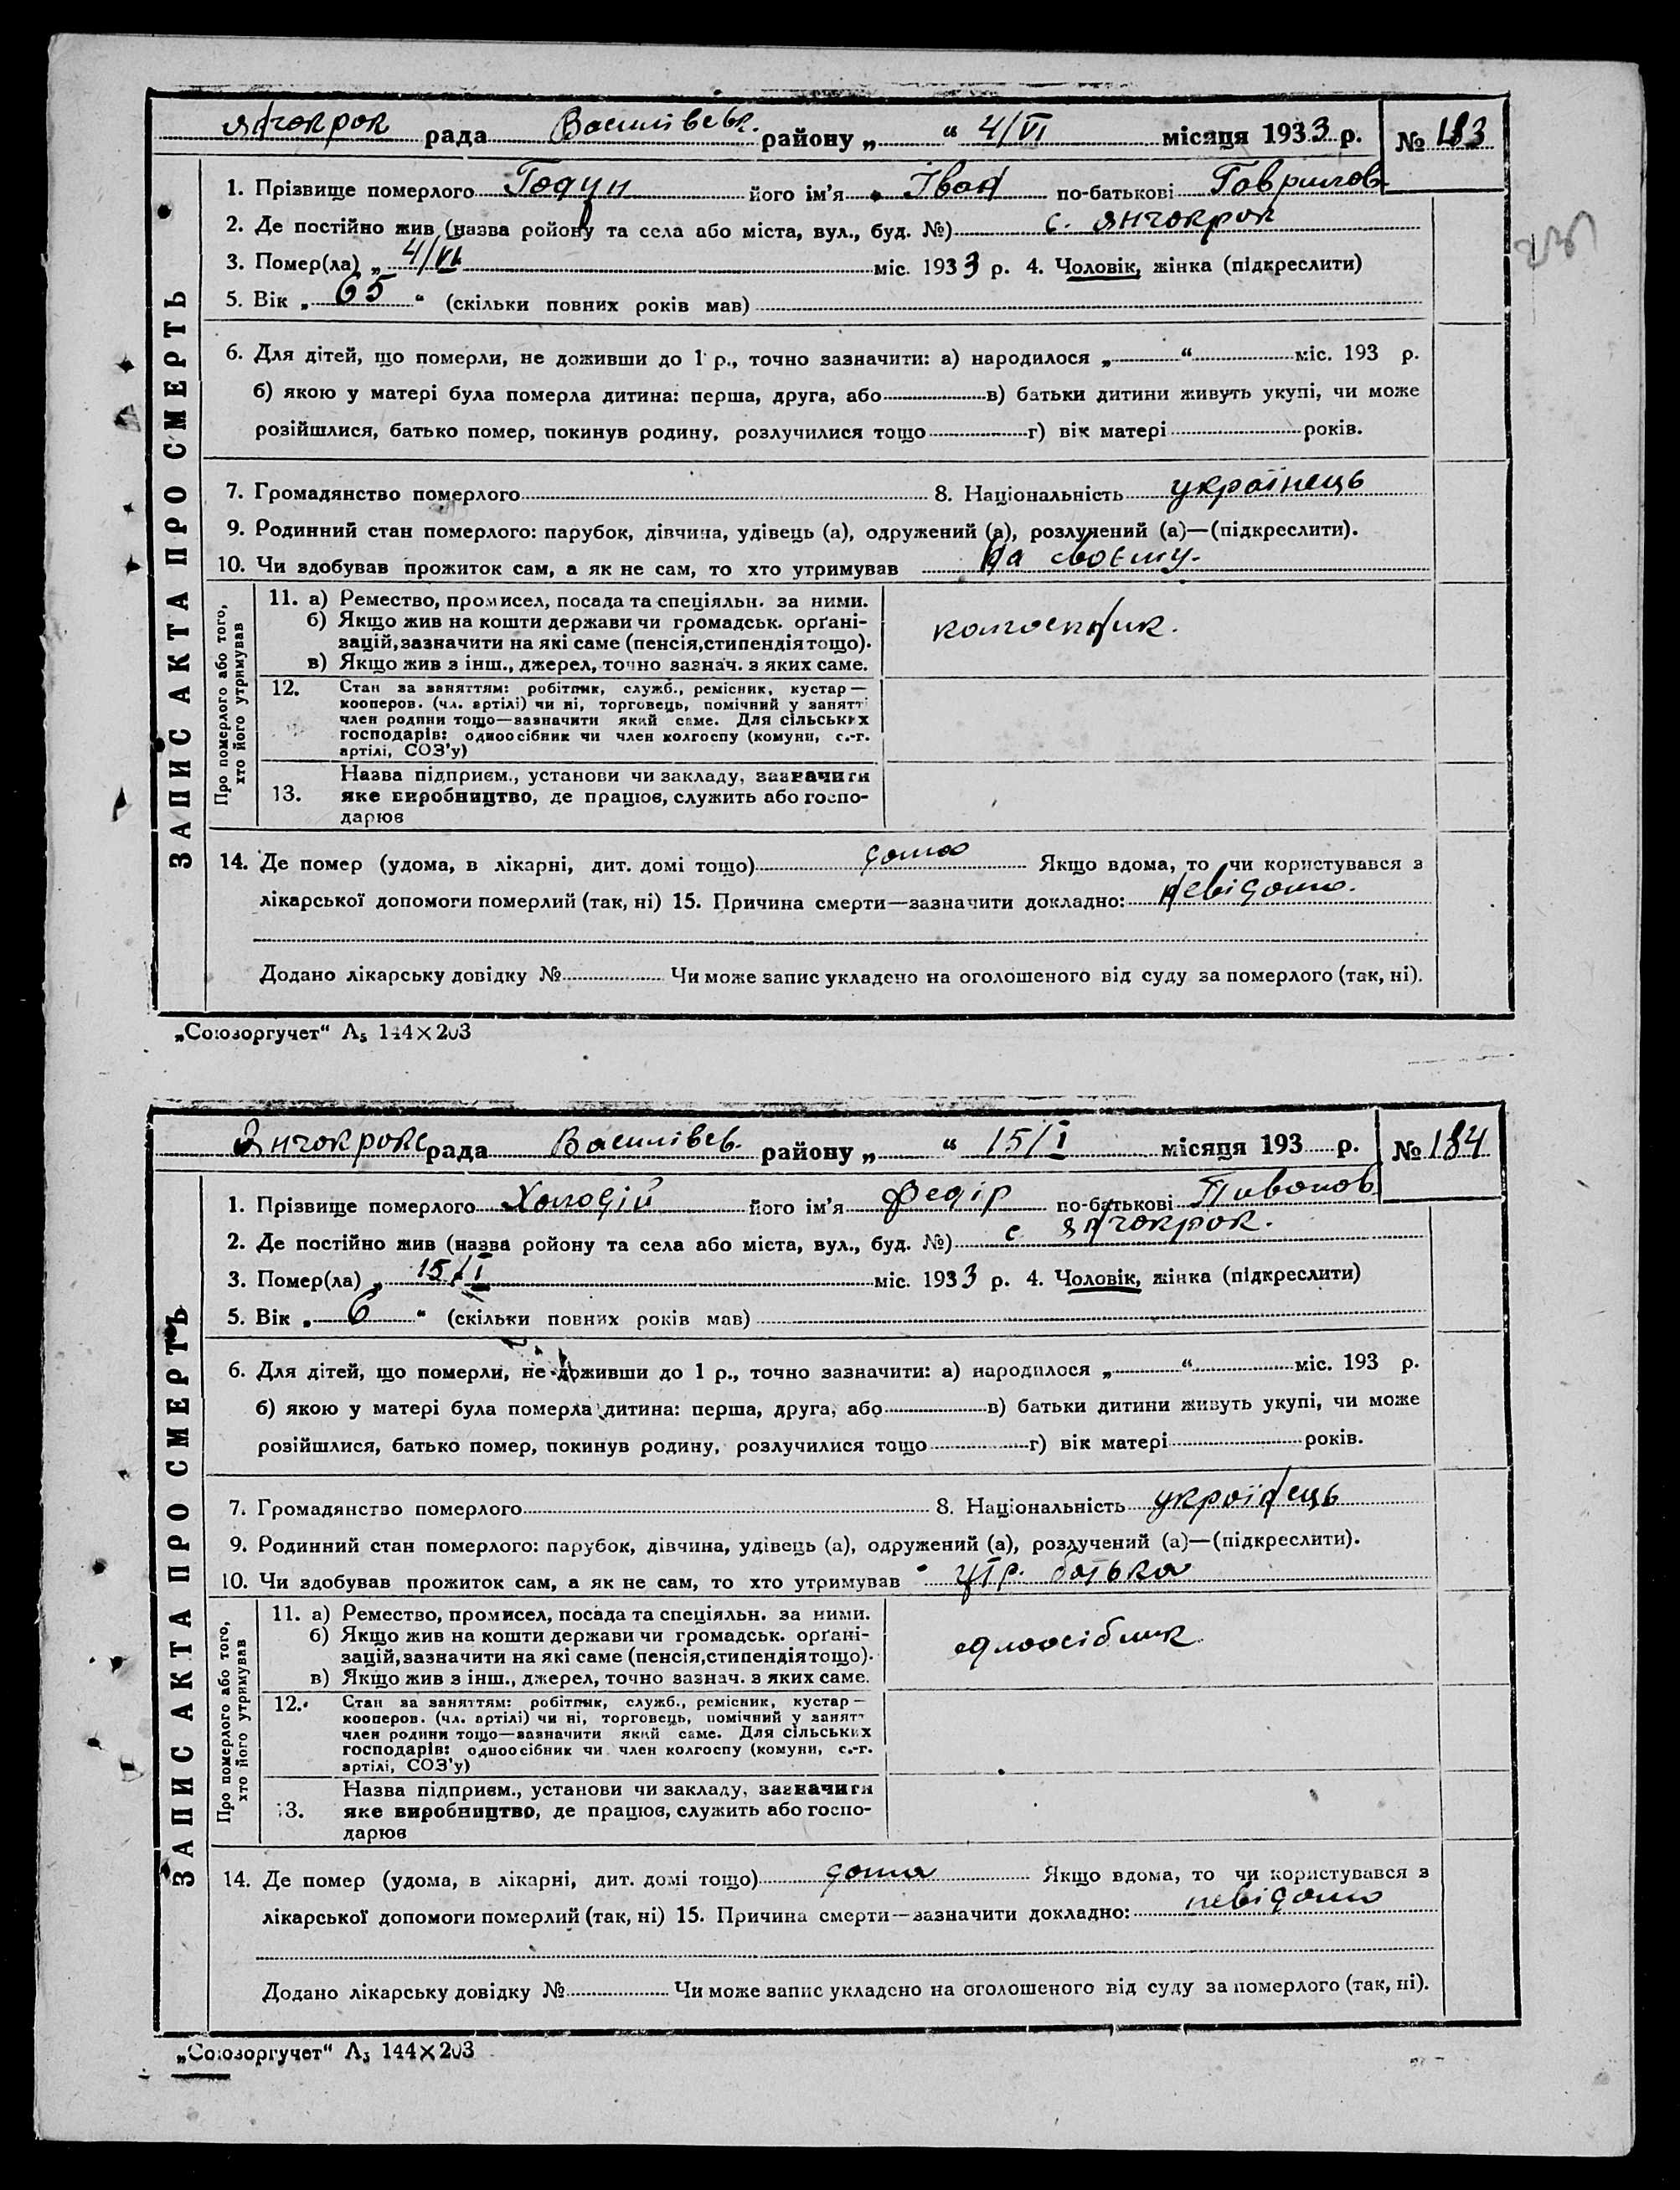 Янчокрок рада Василівськ. району „ “ 4/VI місяця 1933 р. № 183
1. Прізвище померлого Годун його ім'я Іван по-батькові Гаврилов
2. Де постійно жив (назва ройону та села або міста, вул., буд. №) с. Янчокрок
3. Помер(ла) „ 4/VI міс. 1933 р. 4. Чоловік, жінка (підкреслити)
5. Вік „ 65 “ (скільки повних років мав)
6. Для дітей, що померли, не доживши до 1 р., точно зазначити: а) народилося „ “ міс. 193 р.
б) якою у матері була померла дитина: перша, друга, або в) батьки дитини живуть укупі, чи може
розійшлися, батько помер, покинув родину, розлучилися тощо г) вік матері років.
7. Громадянство померлого 8. Національність українець
9. Родинний стан померлого: парубок, дівчина, удівець (а), одружений (а), розлучений (а)—(підкреслити).
10. Чи здобував прожиток сам, а як не сам, то хто утримував на своєму.
ЗАПИС АКТА ПРО СМЕРТЬ
Про померлого або того, хто його утримував
11. а) Ремество, промисел, посада та спеціяльн. за ними.
б) Якщо жив на кошти держави чи громадськ. орґані-
зацій, зазначити на які саме (пенсія, стипендія тощо).
в) Якщо жив з інш., джерел, точно зазнач. з яких саме.
колгоспник.
12. Стан за заняттям: робітник, служб., ремісник, кустар —
кооперов. (чл. артілі) чи ні, торговець, помічний у занятт
член родини тощо—зазначити який саме. Для сільських
господарів: одноосібник чи член колгоспу (комуни, с.-г.
артілі, СОЗ'у)
Назва підприєм., установи чи закладу, зазначити
13. яке виробництво, де працює, служить або госпо-
дарює
14. Де помер (удома, в лікарні, дит. домі тощо) дома Якщо вдома, то чи користувався з
лікарської допомоги померлий (так, ні) 15. Причина смерти—зазначити докладно: невідомо.
Додано лікарську довідку № Чи може запис укладено на оголошеного від суду за померлого (так, ні).
„Союзоргучет“ А5 144×203
Янчокрокс рада Василівсв. району „ “ 15/I місяця 193 р. № 184
1. Прізвище померлого Холодій його ім'я Федір по-батькові Пивонов
2. Де постійно жив (назва ройону та села або міста, вул., буд. №) с Янчокрок.
3. Помер(ла) „ 15/I міс. 1933 р. 4. Чоловік, жінка (підкреслити)
5. Вік „ 6 “ (скільки повних років мав)
6. Для дітей, що померли, не доживши до 1 р., точно зазначити: а) народилося „ “ міс. 193 р.
б) якою у матері була померла дитина: перша, друга, або в) батьки дитини живуть укупі, чи може
розійшлися, батько помер, покинув родину, розлучилися тощо г) вік матері років.
7. Громадянство померлого 8. Національність українець
9. Родинний стан померлого: парубок, дівчина, удівець (а), одружений (а), розлучений (а)—(підкреслити).
10. Чи здобував прожиток сам, а як не сам, то хто утримував утр. батька
ЗАПИС АКТА ПРО СМЕРТЬ
Про померлого або того, хто його утримував
11. а) Ремество, промисел, посада та спеціяльн. за ними.
б) Якщо жив на кошти держави чи громадськ. орґані-
зацій, зазначити на які саме (пенсія, стипендія тощо).
в) Якщо жив з інш., джерел, точно зазнач. з яких саме.
одноосібник
12. Стан за заняттям: робітник, служб., ремісник, кустар —
кооперов. (чл. артілі) чи ні, торговець, помічний у занятт
член родини тощо—зазначити який саме. Для сільських
господарів: одноосібник чи член колгоспу (комуни, с.-г.
артілі, СОЗ'у)
Назва підприєм., установи чи закладу, зазначити
13. яке виробництво, де працює, служить або госпо-
дарює
14. Де помер (удома, в лікарні, дит. домі тощо) дома Якщо вдома, то чи користувався з
лікарської допомоги померлий (так, ні) 15. Причина смерти—зазначити докладно: невідомо
Додано лікарську довідку № Чи може запис укладено на оголошеного від суду за померлого (так, ні).
„Союзоргучет“ А5 144×203